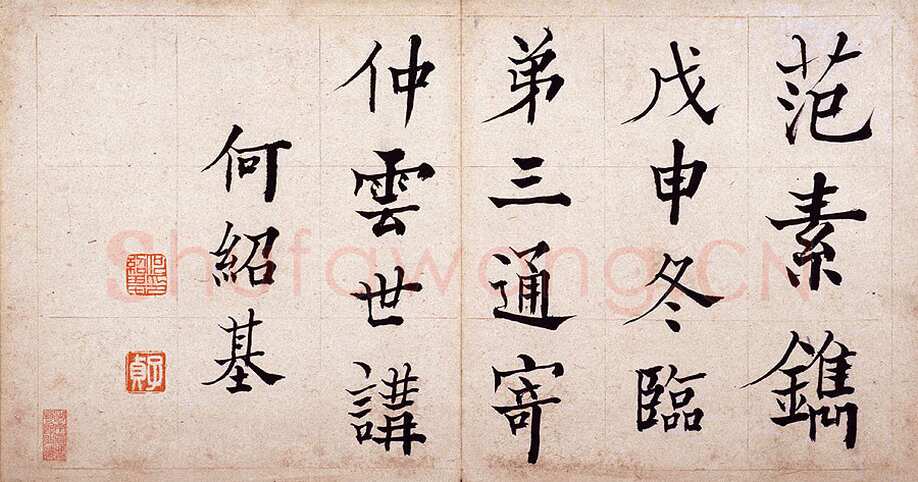 范素鐫
戊申冬臨
弟三通寄
仲雲世講
何紹基
Shufawang.CN